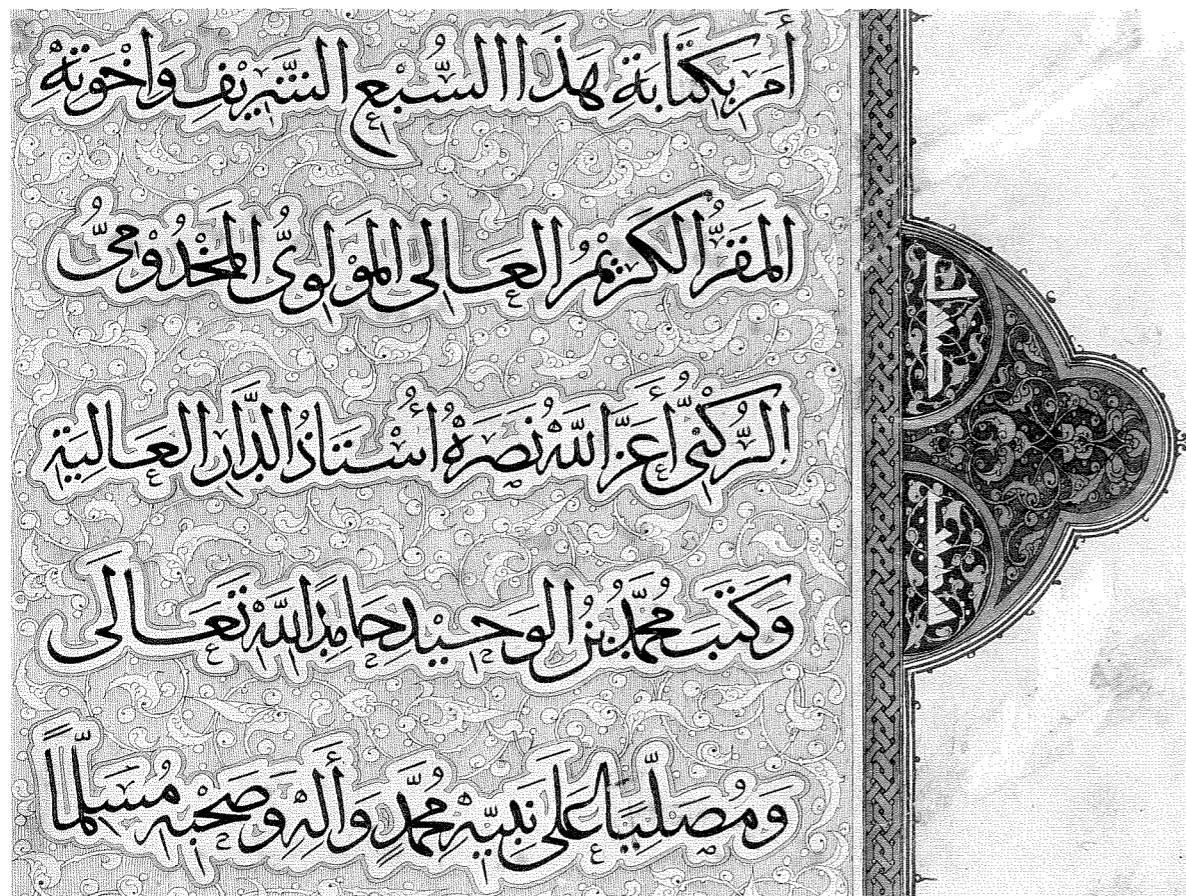 أَمَرَ بِكِتَابَةِ هَذَا السُّبْعِ الشَّرِيفِ وَأَخْوَتِهِ
المَقَرُّ الكَرِيْمُ العَالِى المَوْلَوِىُّ المَخْدُوْمِىُّ
الرُّكْنِىُّ أَعَزَّ اللهُ نَصْرَهُ أُسْتَاذُ الدَّارِ العَالِيَةِ
وَكَتَبَ مُحَمَّدُ بْنُ الوَحِيْدِ حَامِدًا لِلّهِ تَعَالَى
وَمُصَلِّيًا عَلَى نَبِيِّهِ مُحَمَّدٍ وَأٰلِهِ وَصَحْبِهِ مُسَلِّمًا